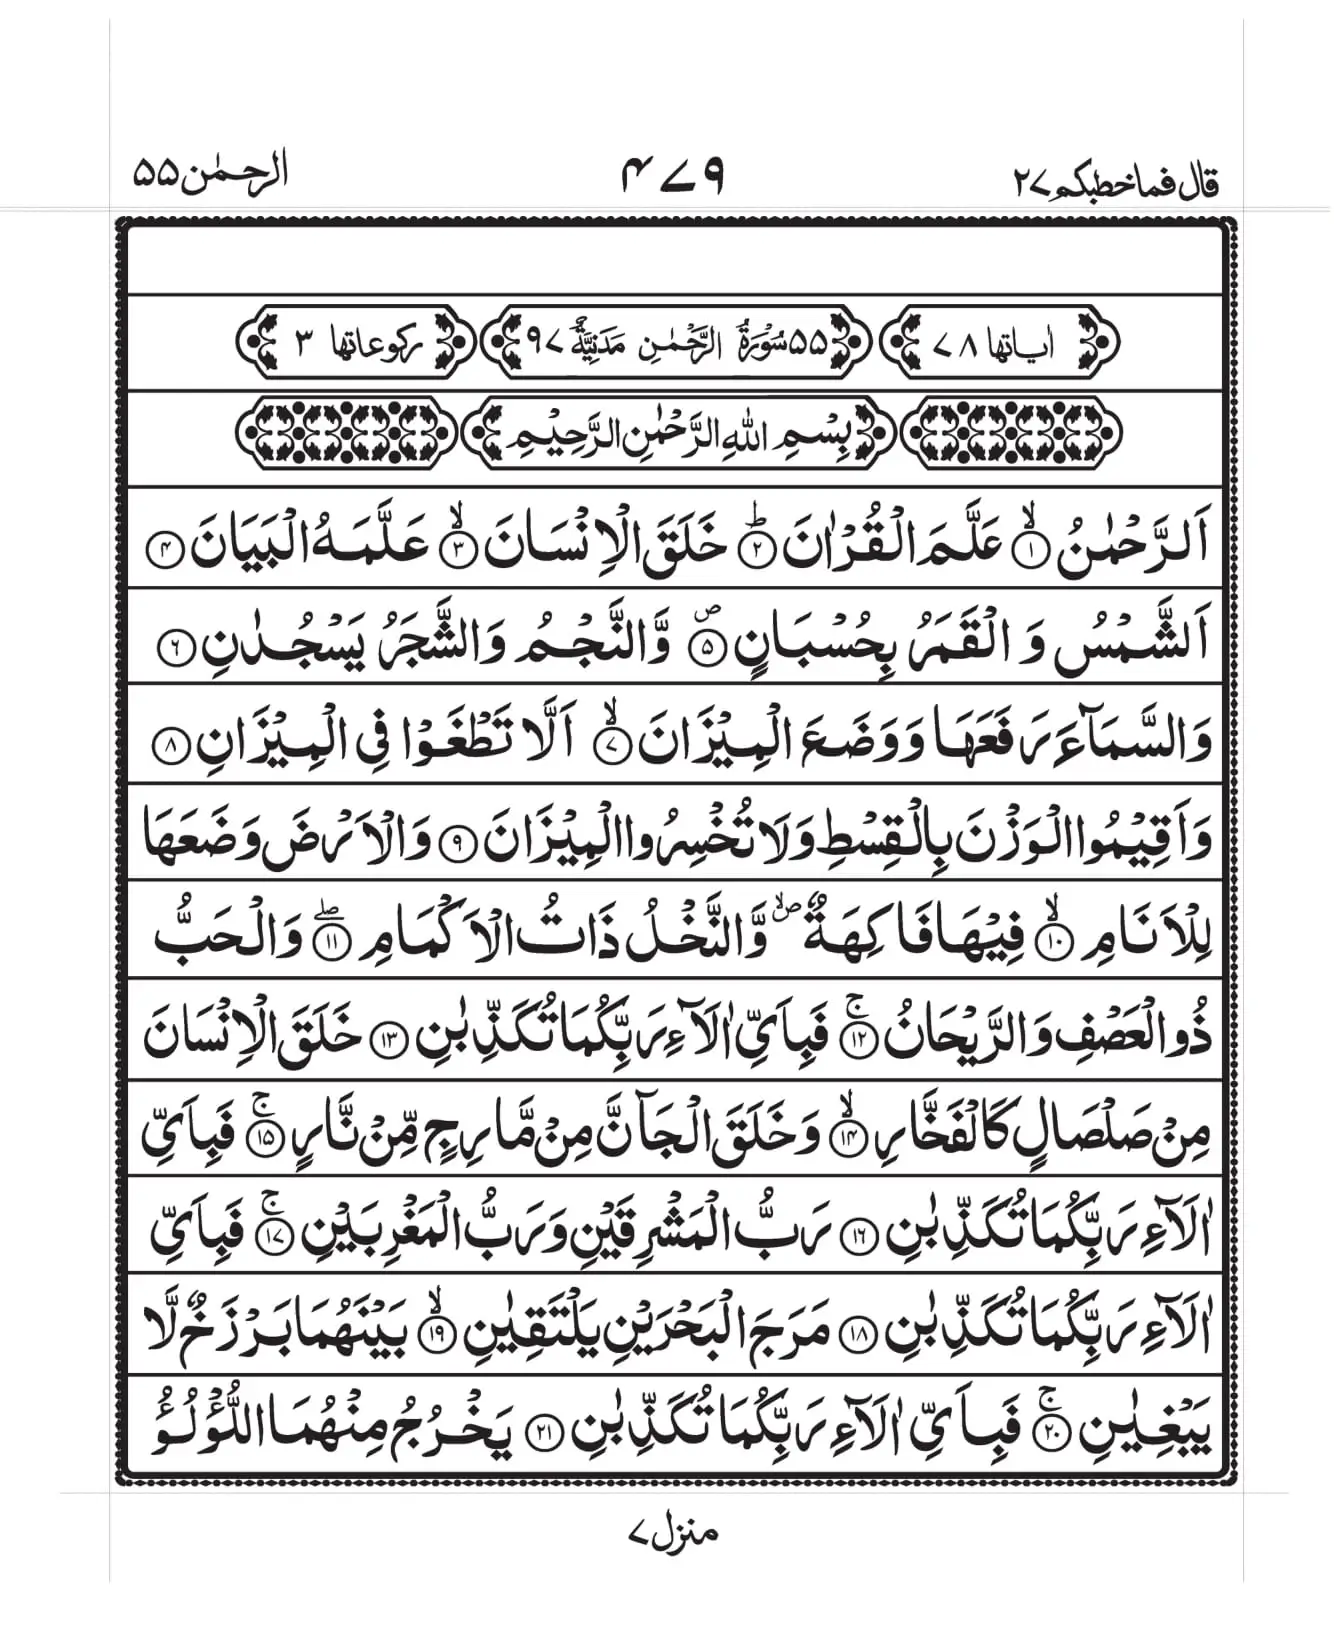 قال فماخطبکم ۲۷ ۴۷۹ الرحمٰن ۵۵
اٰیاتها ۷۸ ۵۵ سُوْرَةُ الرَّحْمٰنِ مَدَنِیَّةٌ ۹۷ رکوعاتها ۳
بِسْمِ اللهِ الرَّحْمٰنِ الرَّحِیْمِ
اَلرَّحْمٰنُ ۙ﴿۱﴾ عَلَّمَ الْقُرْاٰنَ ؕ﴿۲﴾ خَلَقَ الْاِنْسَانَ ۙ﴿۳﴾ عَلَّمَهُ الْبَیَانَ ﴿۴﴾
اَلشَّمْسُ وَ الْقَمَرُ بِحُسْبَانٍ ۪﴿۵﴾ وَّالنَّجْمُ وَالشَّجَرُ یَسْجُدٰنِ ﴿۶﴾
وَالسَّمَآءَ رَفَعَهَا وَوَضَعَ الْمِیْزَانَ ۙ﴿۷﴾ اَلَّا تَطْغَوْا فِی الْمِیْزَانِ ﴿۸﴾
وَاَقِیْمُوا الْوَزْنَ بِالْقِسْطِ وَلَا تُخْسِرُوا الْمِیْزَانَ ﴿۹﴾ وَالْاَرْضَ وَضَعَهَا
لِلْاَنَامِ ۙ﴿۱۰﴾ فِیْهَا فَاكِهَةٌ ۪ۙ وَّالنَّخْلُ ذَاتُ الْاَكْمَامِ ۖ﴿۱۱﴾ وَالْحَبُّ
ذُو الْعَصْفِ وَالرَّیْحَانُ ۚ﴿۱۲﴾ فَبِاَیِّ اٰلَآءِ رَبِّكُمَا تُكَذِّبٰنِ ﴿۱۳﴾ خَلَقَ الْاِنْسَانَ
مِنْ صَلْصَالٍ كَالْفَخَّارِ ۙ﴿۱۴﴾ وَخَلَقَ الْجَآنَّ مِنْ مَّارِجٍ مِّنْ نَّارٍ ۚ﴿۱۵﴾ فَبِاَیِّ
اٰلَآءِ رَبِّكُمَا تُكَذِّبٰنِ ﴿۱۶﴾ رَبُّ الْمَشْرِقَیْنِ وَرَبُّ الْمَغْرِبَیْنِ ۚ﴿۱۷﴾ فَبِاَیِّ
اٰلَآءِ رَبِّكُمَا تُكَذِّبٰنِ ﴿۱۸﴾ مَرَجَ الْبَحْرَیْنِ یَلْتَقِیٰنِ ۙ﴿۱۹﴾ بَیْنَهُمَا بَرْزَخٌ لَّا
یَبْغِیٰنِ ۚ﴿۲۰﴾ فَبِاَیِّ اٰلَآءِ رَبِّكُمَا تُكَذِّبٰنِ ﴿۲۱﴾ یَخْرُجُ مِنْهُمَا اللُّؤْلُؤُ
منزل ۷